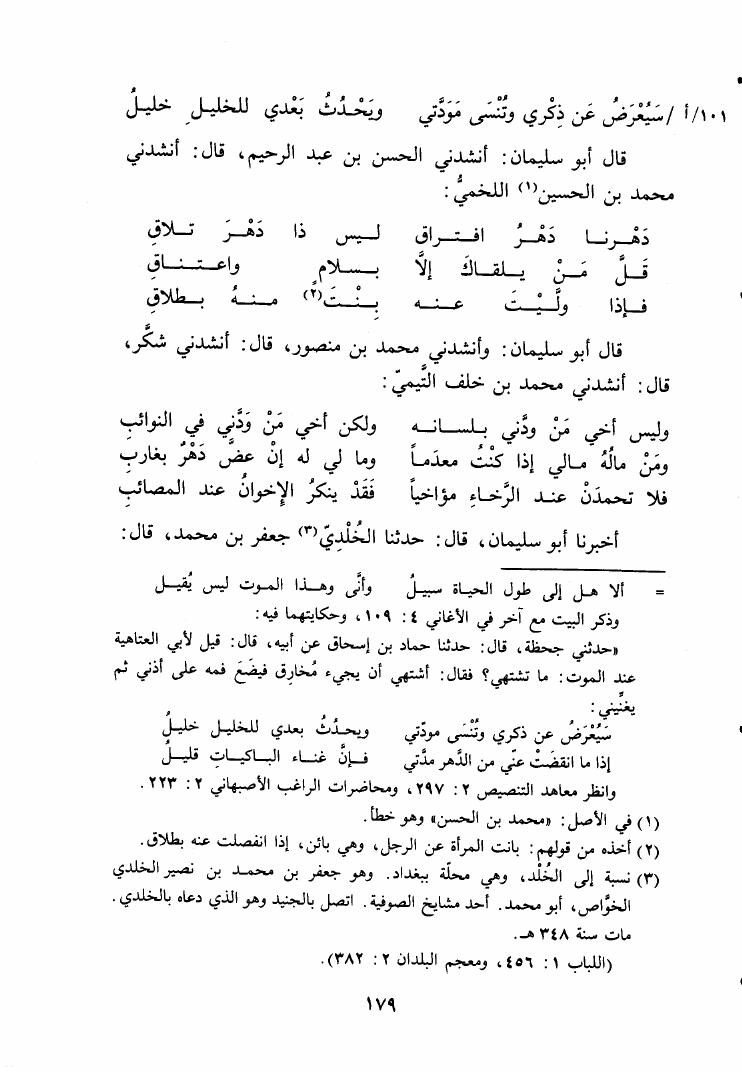 ١٠١/أ /سَيُعْرَضُ عَن ذِكْري وتُنْسَى مَوَدَّتي ويَحْدُثُ بَعْدي للخليلِ خليلُ
قال أبو سليمان: أنشدني الحسن بن عبد الرحيم، قال: أنشدني
محمد بن الحسين(١) اللخميُّ:
دَهْرنا دَهْرُ افتراقِ ليس ذا دَهْرَ تلاقِ
قَلَّ مَنْ يلقاكَ إلَّا بسلامٍ واعتناقِ
فإذا ولَّيْتَ عنه بِنْتَ(٢) منهُ بطلاقِ
قال أبو سليمان: وأنشدني محمد بن منصور، قال: أنشدني شكَّر،
قال: أنشدني محمد بن خلف التَّيميّ:
وليس أخي مَنْ ودَّني بلسانه ولكن أخي مَنْ وَدَّني في النوائبِ
ومَنْ مالُهُ مالي إذا كنْتُ معدَماً وما لي له إنْ عضَّ دَهْرٌ بغاربِ
فلا تحمدَنْ عند الرَّخاءِ مؤاخياً فَقَدْ ينكرُ الإخوانُ عند المصائبِ
أخبرنا أبو سليمان، قال: حدثنا الخُلْدِيّ(٣) جعفر بن محمد، قال:
= ألا هل إلى طول الحياة سبيلُ وأنَّى وهذا الموت ليس يُقيل
وذكر البيت مع آخر في الأغاني ٤: ١٠٩، وحكايتهما فيه:
«حدثني جحظة، قال: حدثنا حماد بن إسحاق عن أبيه، قال: قيل لأبي العتاهية
عند الموت: ما تشتهي؟ فقال: أشتهي أن يجيء مُخارِق فيضَعَ فمه على أذني ثم
يغنِّيني:
سَيُعْرَضُ عن ذكري وتُنْسَى مودّتي ويحدُثُ بعدي للخليل خليلُ
إذا ما انقضَتْ عنّي من الدَّهر مدَّتي فإنَّ غناء الباكيات قليلُ
وانظر معاهد التنصيص ٢: ٢٩٧، ومحاضرات الراغب الأصبهاني ٢: ٢٢٣.
(١) في الأصل: «محمد بن الحسن» وهو خطأ.
(٢) أخذه من قولهم: بانت المرأة عن الرجل، وهي بائن، إذا انفصلت عنه بطلاق.
(٣) نسبة إلى الخُلْد، وهي محلّة ببغداد. وهو جعفر بن محمد بن نصير الخلدي
الخوَّاص، أبو محمد. أحد مشايخ الصوفية. اتصل بالجنيد وهو الذي دعاه بالخلدي.
مات سنة ٣٤٨ هـ.
(اللباب ١: ٤٥٦، ومعجم البلدان ٢: ٣٨٢).
١٧٩